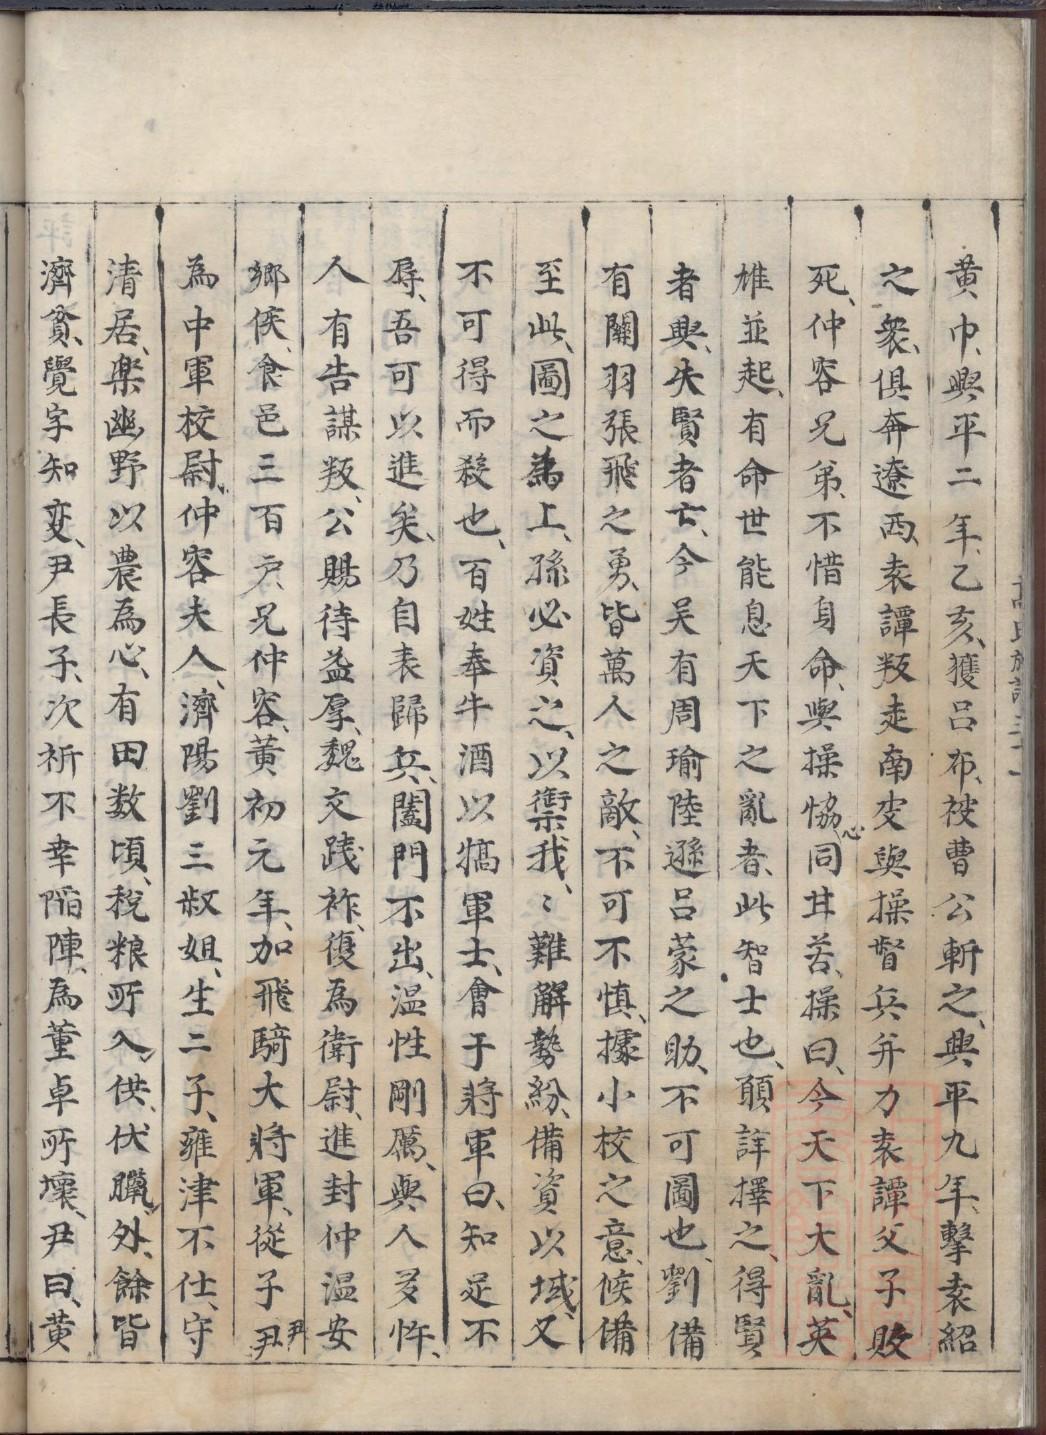 黄巾、興平二年、乙亥、獲呂布、被曹公斬之、興平九年、擊袁紹
之衆、俱奔遼西、袁譚叛走南皮與操督兵并力袁譚父子敗
死、仲容兄弟、不惜身命、與操恊心同甘苦、操曰、今天下大亂、英
雄並起、有命世能息天下之亂者、此智士也、願詳擇之、得賢
者興、失賢者亡、今吴有周瑜陸遜呂蒙之助、不可圖也、劉備
有關羽張飛之勇、皆萬人之敵、不可不慎、據小校之意、候備
至此、圖之為上、孫必資之、以禦我、〻難解勢紛、備資以域、又
不可得而殺也、百姓奉牛酒以犒軍士、會于將軍曰、知足不
辱、吾可以進矣、乃自表歸兵、闔門不出、温性剛厲、與人多忤、
人有告謀叛、公賜待益厚、魏文践祚、復為衛尉、進封仲温安
鄉侯、食邑三百戸、兄仲容、黄初元年、加飛騎大將軍、從子尹
為中軍校尉、仲容夫人、濟陽劉三叔姐、生二子、雍津不仕、守
清居、楽幽野以農為心、有田数頃、税粮所入、供伏臘、外、餘皆
濟貧、覺字知変、尹長子、次祈不幸陷陣、為董卓所壞、尹曰、黄